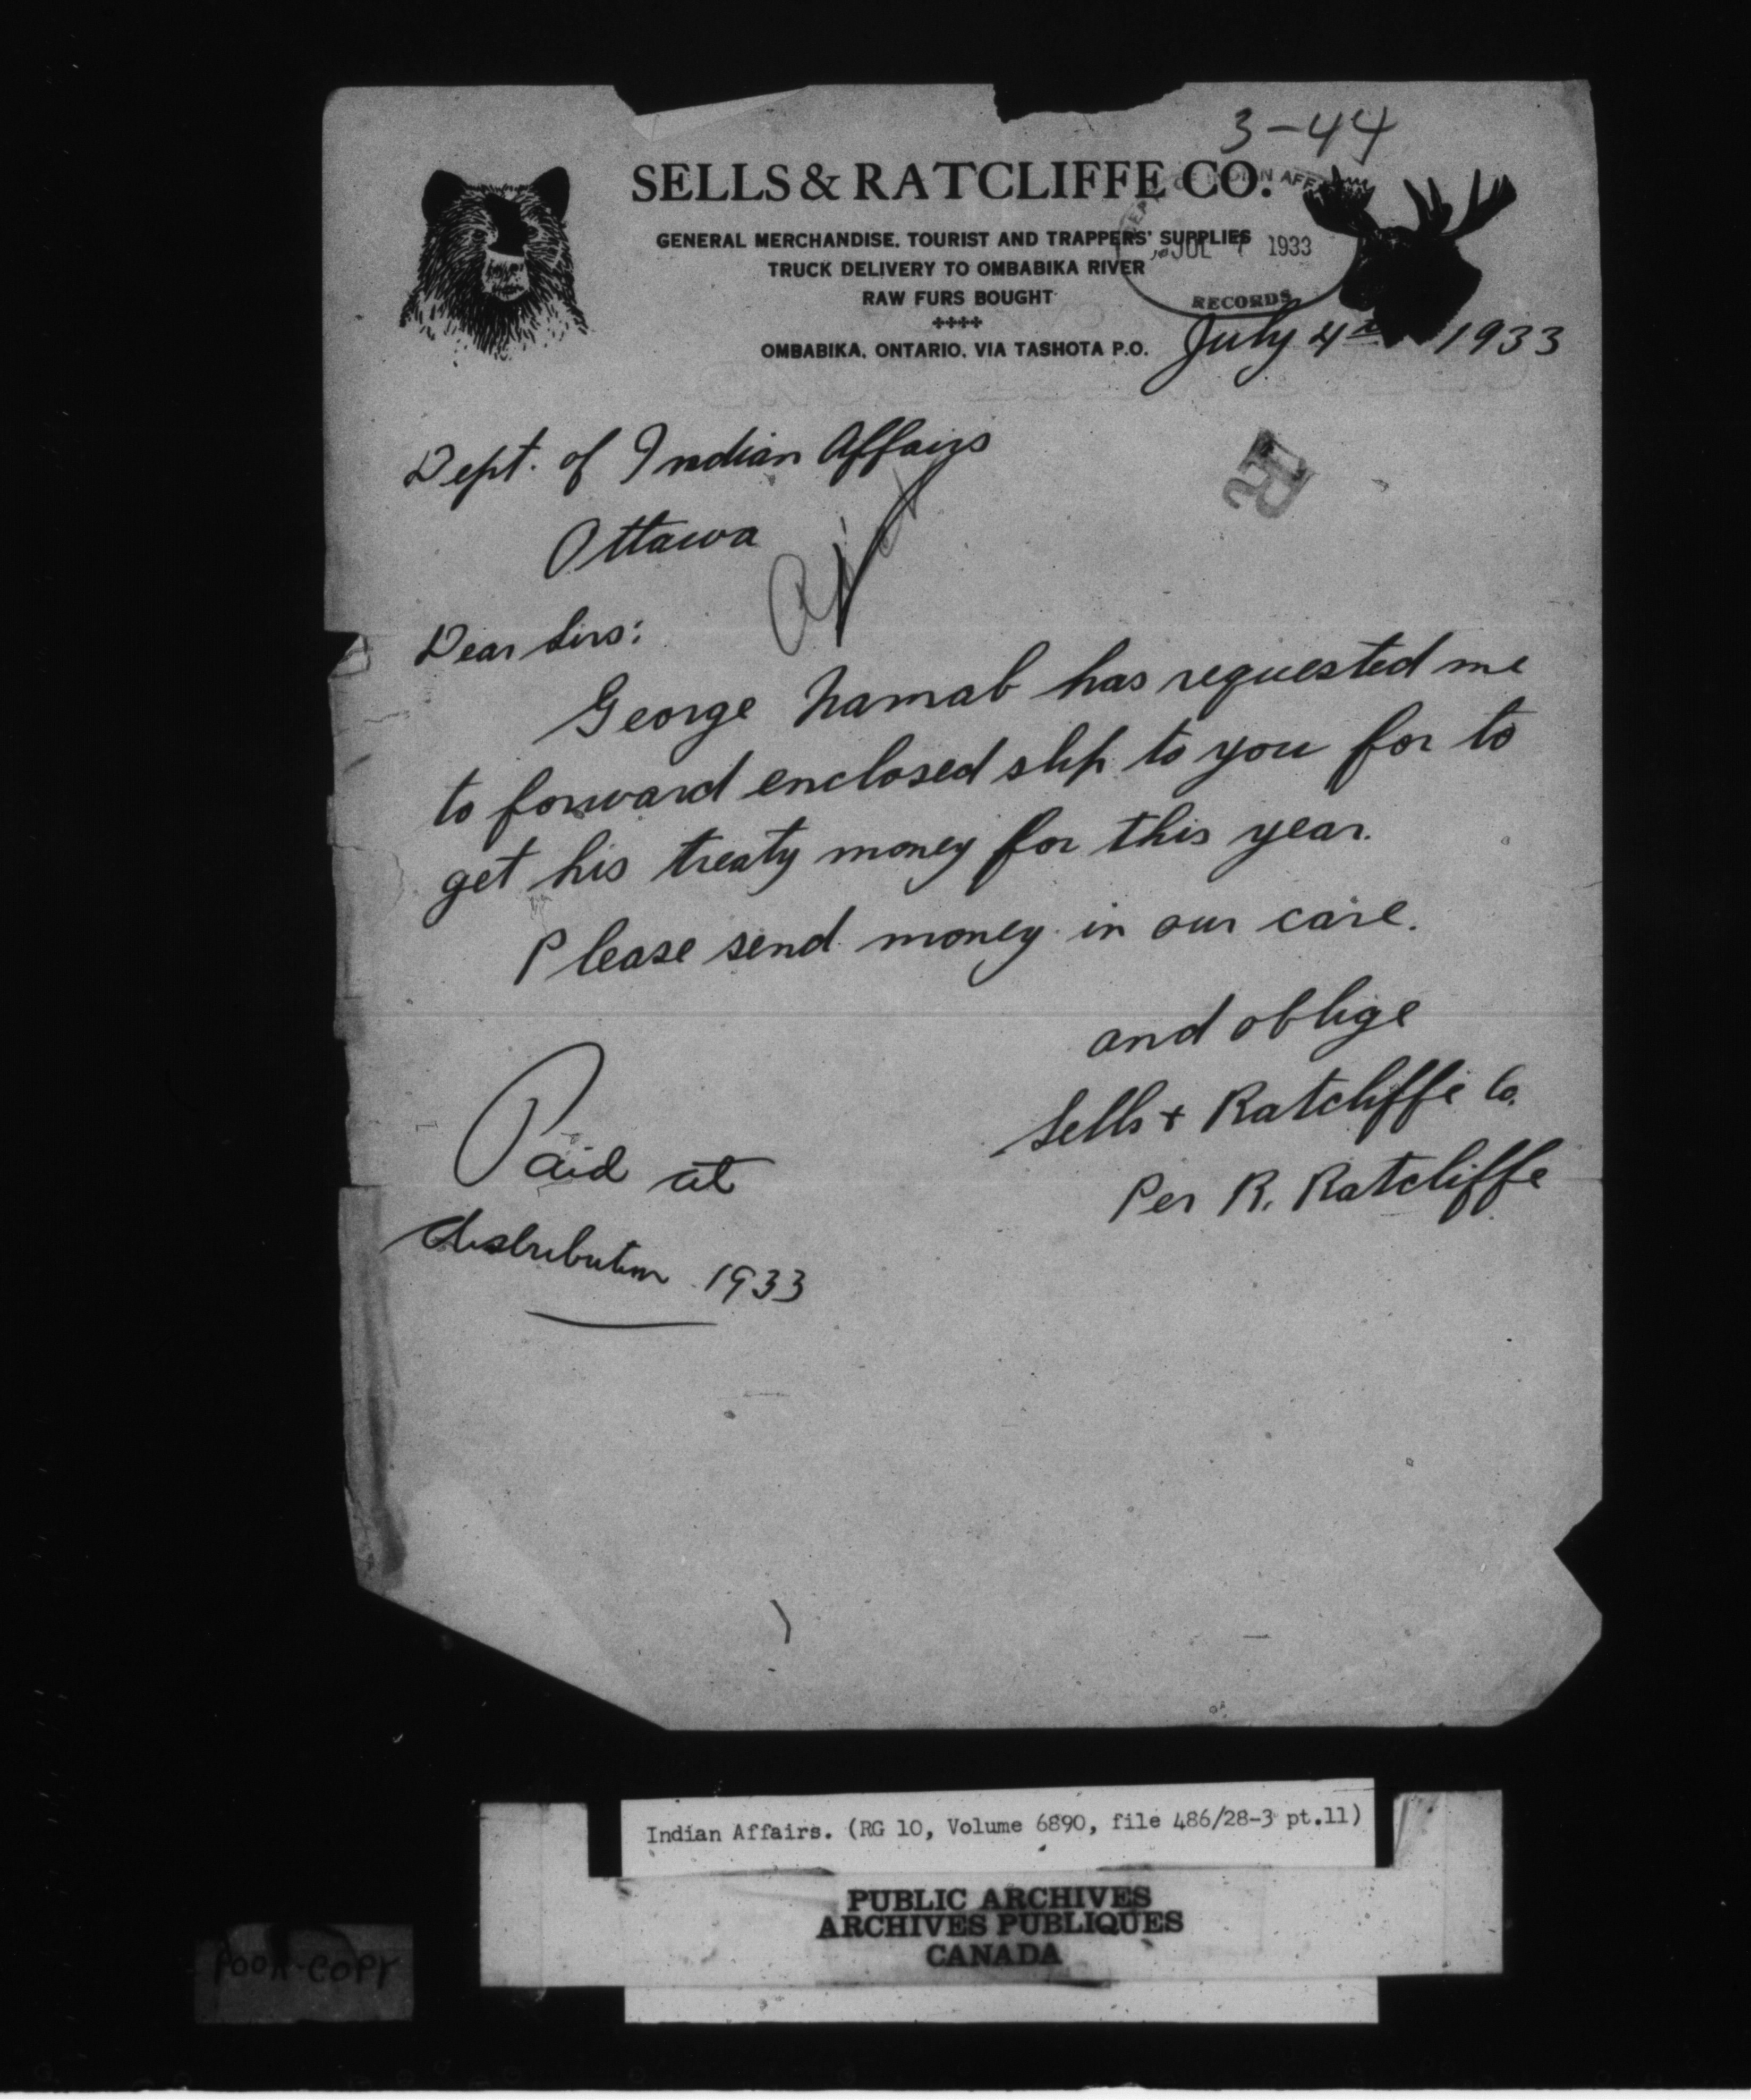 3-44
SELLS & RATCLIFFE CO.
GENERAL MERCHANDISE, TOURIST AND TRAPPERS' SUPPLIES
TRUCK DELIVERY TO OMBABIKA RIVER
RAW FURS BOUGHT
OMBABIKA, ONTARIO, VIA TASHOTA P.O.
OF INDIAN AFF
JUL 7 1933
RECORDS
July 4th 1933
Dept. of Indian Affairs
Ottawa
Dear Sirs:
George Namab has requested me
to forward enclosed slip to you for to
get his treaty money for this year.
Please send money in our care.
and oblige
Sells + Ratcliffe Co.
Per R. Ratcliffe
Paid at
distribution 1933
Indian Affairs. (RG 10, Volume 6890, file 486/28-3 pt.11)
PUBLIC ARCHIVES
ARCHIVES PUBLIQUES
CANADA
POOR COPY